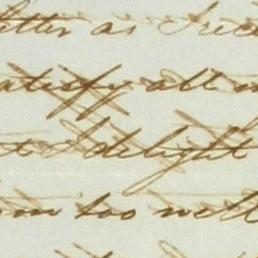 etter as
atisfy all
I delight
too well